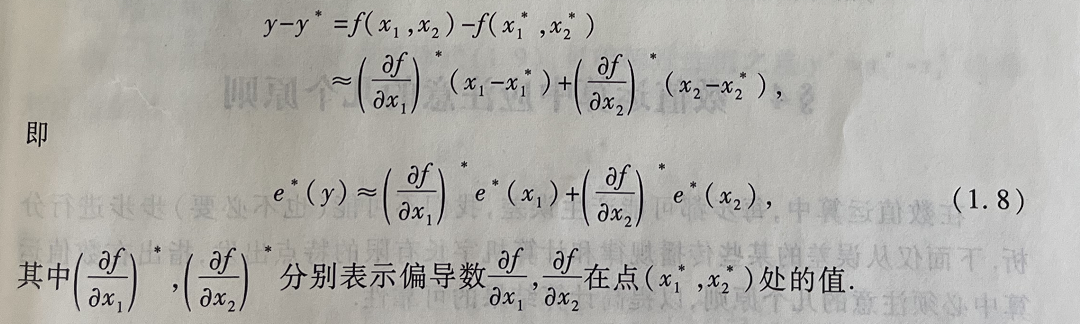 y-y* =f(x₁,x₂)-f(x₁*,x₂*)
≈(∂f/∂x₁)*(x₁-x₁*)+(∂f/∂x₂)*(x₂-x₂*),
即
e*(y)≈(∂f/∂x₁)*e*(x₁)+(∂f/∂x₂)*e*(x₂), (1.8)
其中(∂f/∂x₁)*,(∂f/∂x₂)*分别表示偏导数∂f/∂x₁,∂f/∂x₂在点(x₁*,x₂*)处的值.